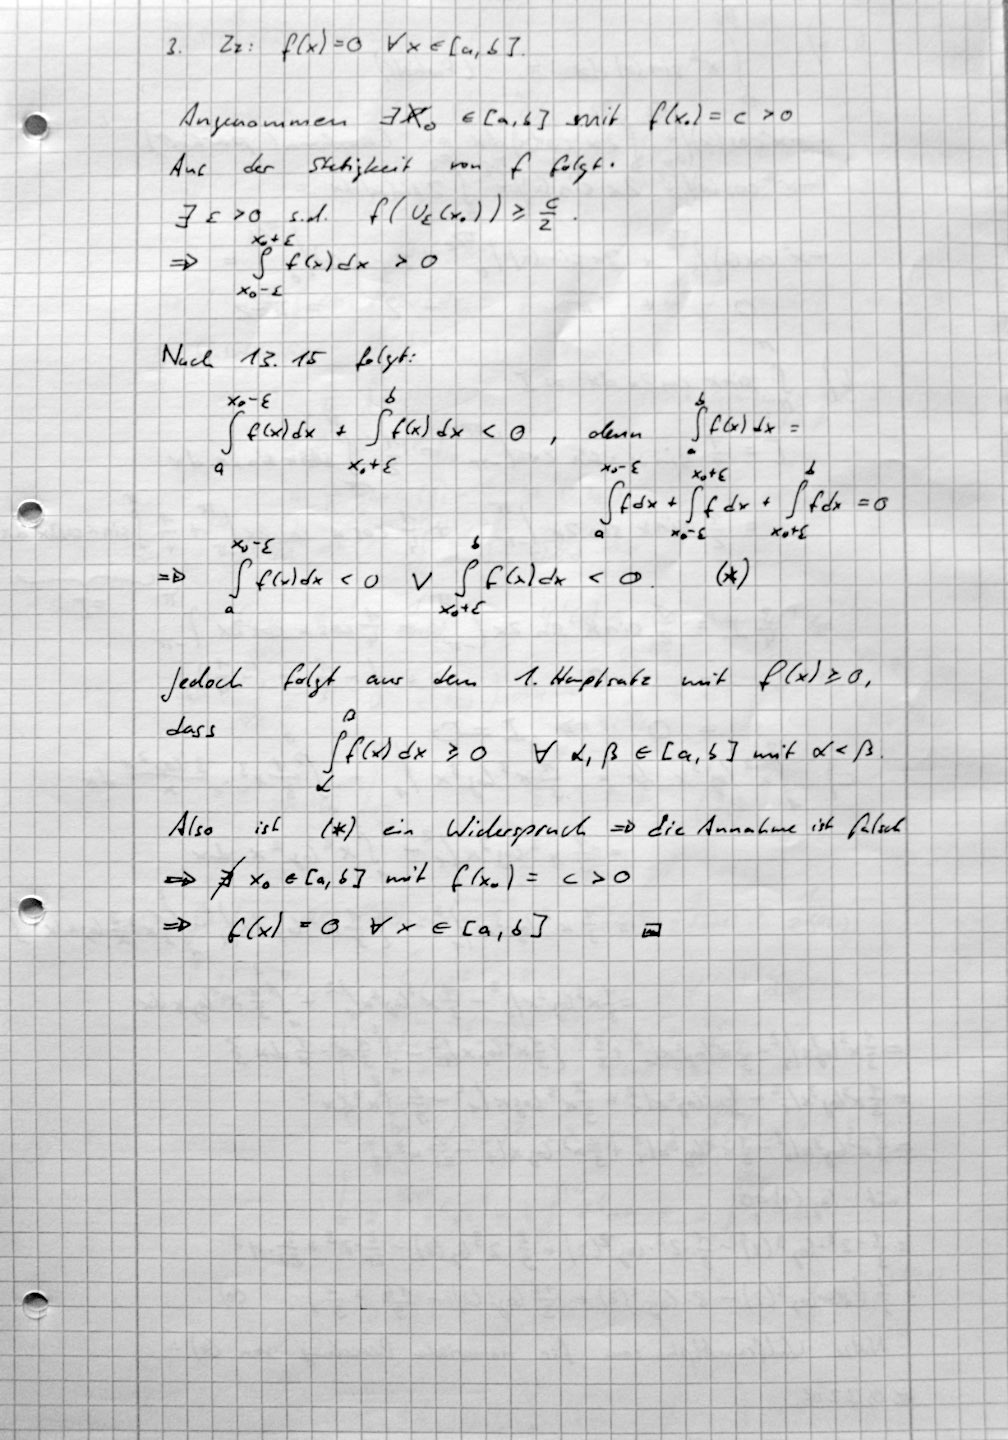 3. Zz: f(x)=0 ∀x∈[a,b].
Angenommen ∃x₀ ∈[a,b] mit f(x₀) = c >0
Aus der Stetigkeit von f folgt:
∃ ε >0 s.d. f(U_ε(x₀)) ≥ c/2.
⇒ ∫_{x₀-ε}^{x₀+ε} f(x)dx > 0
Nach 13.15 folgt:
∫_a^{x₀-ε} f(x)dx + ∫_{x₀+ε}^b f(x)dx < 0, denn ∫_a^b f(x)dx =
∫_a^{x₀-ε} fdx + ∫_{x₀-ε}^{x₀+ε} fdx + ∫_{x₀+ε}^b fdx = 0
⇒ ∫_a^{x₀-ε} f(x)dx < 0 ∨ ∫_{x₀+ε}^b f(x)dx < 0. (*)
Jedoch folgt aus dem 1. Hauptsatz mit f(x) ≥ 0,
dass
∫_α^β f(x)dx ≥ 0 ∀ α, β ∈ [a,b] mit α < β.
Also ist (*) ein Widerspruch ⇒ die Annahme ist falsch
⇒ ∄ x₀ ∈[a,b] mit f(x₀) = c > 0
⇒ f(x) = 0 ∀ x ∈ [a,b] □